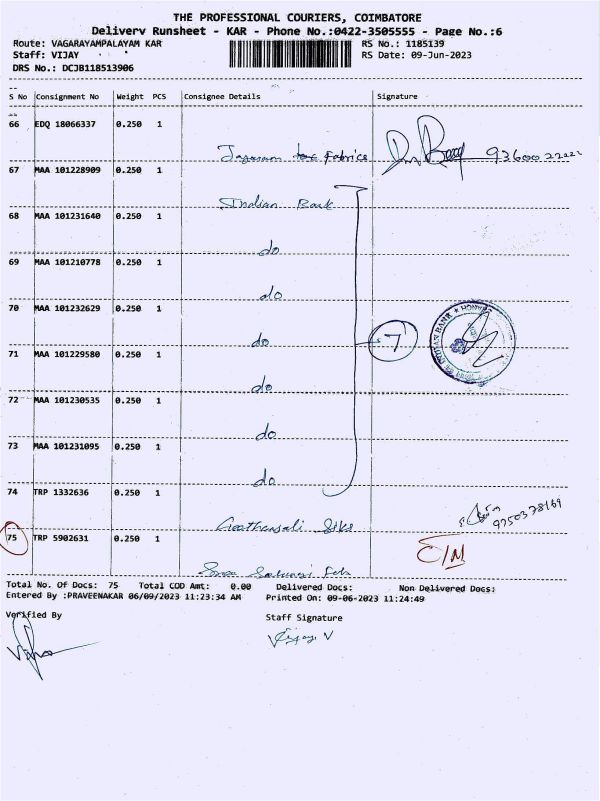 THE PROFESSIONAL COURIERS, COIMBATORE
Delivery Runsheet - KAR - Phone No.:0422-3505555 - Page No.:6
Route: VAGARAYAMPALAYAM KAR RS No.: 1185139
Staff: VIJAY RS Date: 09-Jun-2023
DRS No.: DCJB118513906
S No Consignment No Weight PCS Consignee Details Signature
66 EDQ 18066337 0.250 1
Fabrics 9360022222
67 MAA 101228909 0.250 1
Indian Bank
68 MAA 101231640 0.250 1
do
69 MAA 101210778 0.250 1
do
70 MAA 101232629 0.250 1
do 7
71 MAA 101229580 0.250 1
do
72 MAA 101230535 0.250 1
do
73 MAA 101231095 0.250 1
do
74 TRP 1332636 0.250 1
9750378169
75 TRP 5902631 0.250 1
E/M
Total No. Of Docs: 75 Total COD Amt: 0.00 Delivered Docs: Non Delivered Docs:
Entered By :PRAVEENAKAR 06/09/2023 11:23:34 AM Printed On: 09-06-2023 11:24:49
Verified By Staff Signature
Vijay. V